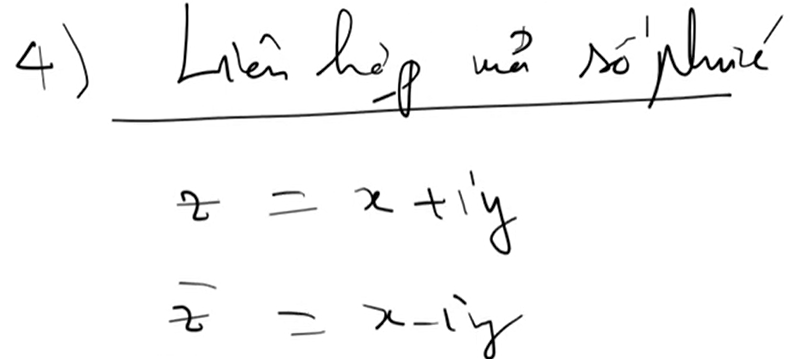 4) Liên hợp của số phức
z = x + iy
z̅ = x - iy